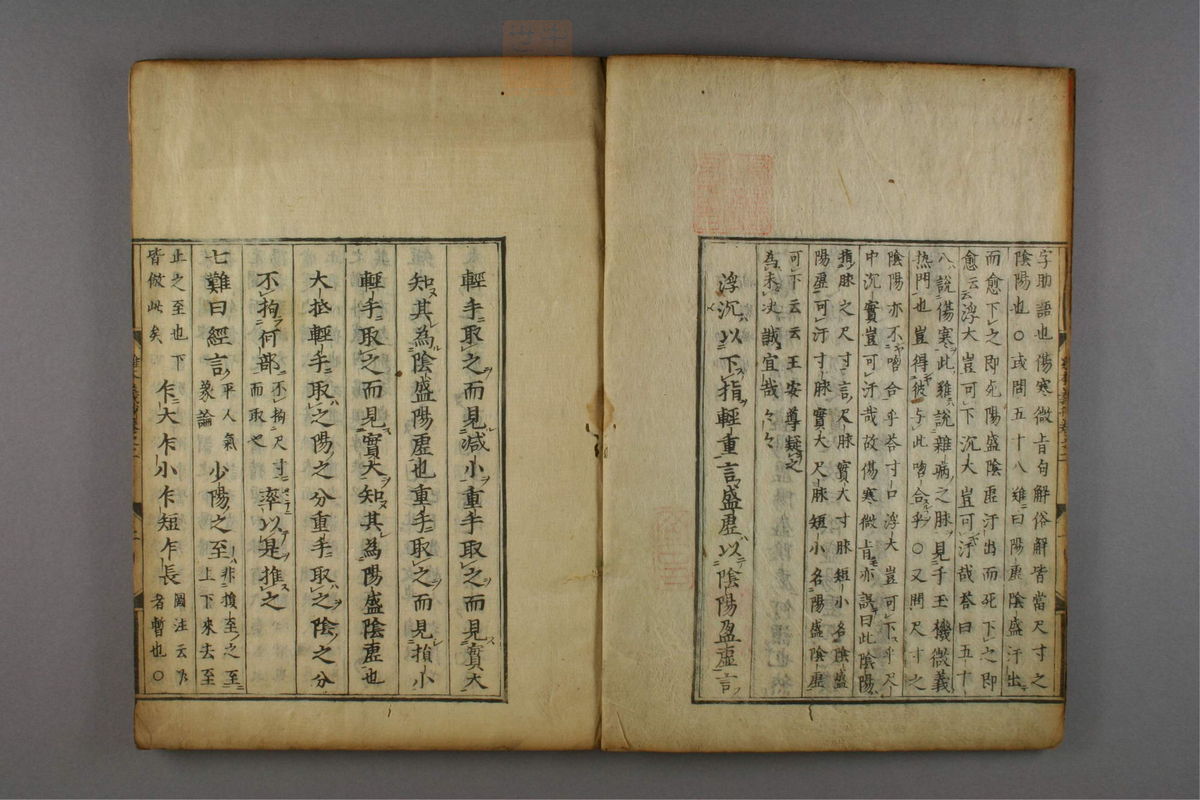 字助語也傷寒微旨句解俗解皆當尺寸之
陰陽也〇或問五十八難曰陽虛陰盛汗出
而愈下之即死陽盛陰虛汗出而死下之即
愈云云浮大豈可下沉大豈可汗哉荅曰五十
八說傷寒此難說雜病之脉見于玉機微義
熱門也豈得彼与此喑合乎〇又問尺寸之
陰陽亦不喑合乎荅寸口浮大豈可下乎尺
中沉實豈可汗哉故傷寒微旨亦誤曰此陰陽
脉之尺寸言尺脉實大寸脉短小名陰盛
陽虛可汗寸脉實大尺脉短小名陽盛陰虛
可下云云王安尊疑之
為未决誠宜哉々々
浮沉以下指輕重言盛虛以陰陽盈虛言
輕手取之而見减小重手取之而見實大
知其為陰盛陽虛也重手取之而見損小
輕手取之而見實大知其為陽盛陰虛也
大抵輕手取之陽之分重手取之陰之分
不拘何部不拘尺寸而取也率以是推之
七難曰經言平人氣象論少陽之至非按至之至上下來去至
止之至也下皆倣此矣乍大乍小乍短乍長者暫也〇